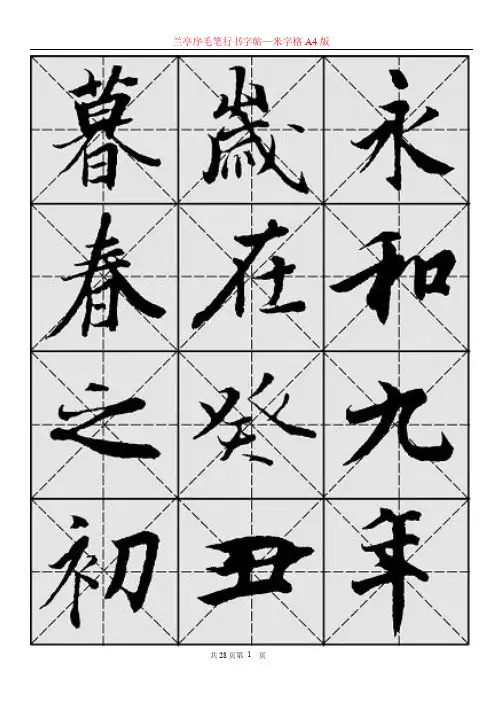 兰亭序毛笔行书字帖—米字格 A4 版
永和九年
歲在癸丑
暮春之初
共 28 页第 1 页